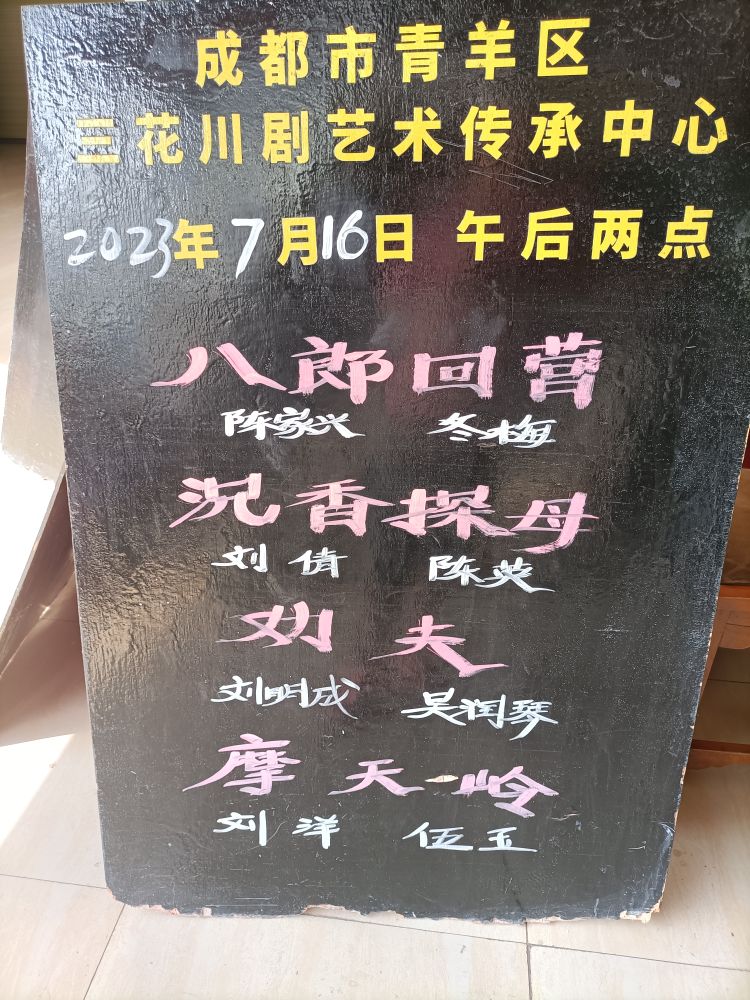 成都市青羊区
三花川剧艺术传承中心
2023年7月16日 午后两点
八郎回营
陈家兴 冬梅
沉香探母
刘倩 陈英
劝夫
刘明成 吴润琴
摩天岭
刘洋 伍玉